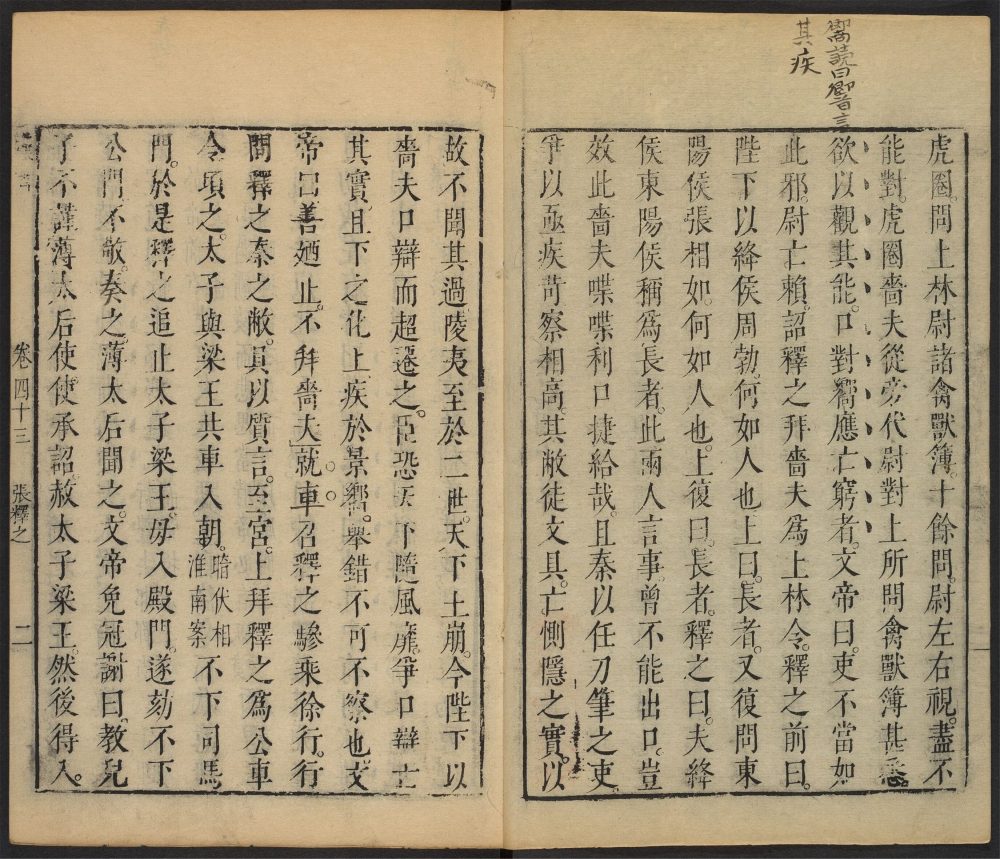 嚮讀曰響言
其疾
虎圈。問上林尉諸禽獸簿。十餘問。尉左右視。盡不
能對。虎圈嗇夫從旁代尉對上所問禽獸簿甚悉。
欲以觀其能。口對嚮應亡窮者。文帝曰。吏不當如
此邪。尉亡賴。詔釋之拜嗇夫爲上林令。釋之前曰。
陛下以絳侯周勃。何如人也上曰。長者。又復問東
陽侯張相如。何如人也。上復曰。長者。釋之曰。夫絳
侯東陽侯稱爲長者。此兩人言事。曾不能出口。豈
效此嗇夫喋喋利口捷給哉。且秦以任刀筆之吏。
爭以亟疾苛察相高。其敝徒文具。亡惻隱之實。以
故不聞其過陵夷至於二世。天下土崩。今陛下以
嗇夫口辯而超遷之。臣恐天下隨風靡。爭口辯亡
其實。且下之化上疾於景嚮。舉錯不可不察也文
帝曰善廼止。不拜嗇夫就車。召釋之驂乘徐行。行
問釋之秦之敝。具以質言。至宮。上拜釋之爲公車
令頃之。太子與梁王共車入朝。暗伏相淮南案不下司馬
門。於是釋之追止太子梁王。毋入殿門。遂劾不下
公門不敬。奏之。薄太后聞之。文帝免冠謝曰。教兒
子不謹。薄太后使使承詔。赦太子梁王。然後得入。
卷四十三 張釋之 二